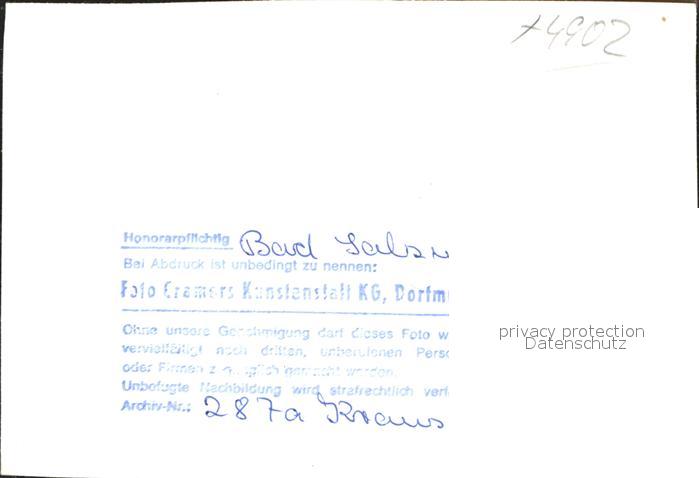 +4902
Honorarpflichtig Bad Salz
Bei Abdruck ist unbedingt zu nennen:
Foto Cramers Kunstanstalt KG, Dortm
Ohne unsere Genehmigung darf dieses Foto w
vervielfältigt noch dritten, unberufenen Perso
oder Firmen zugänglich gemacht werden.
Unbefugte Nachbildung wird strafrechtlich verf
Archiv-Nr.: 287a Kraus
privacy protection
Datenschutz